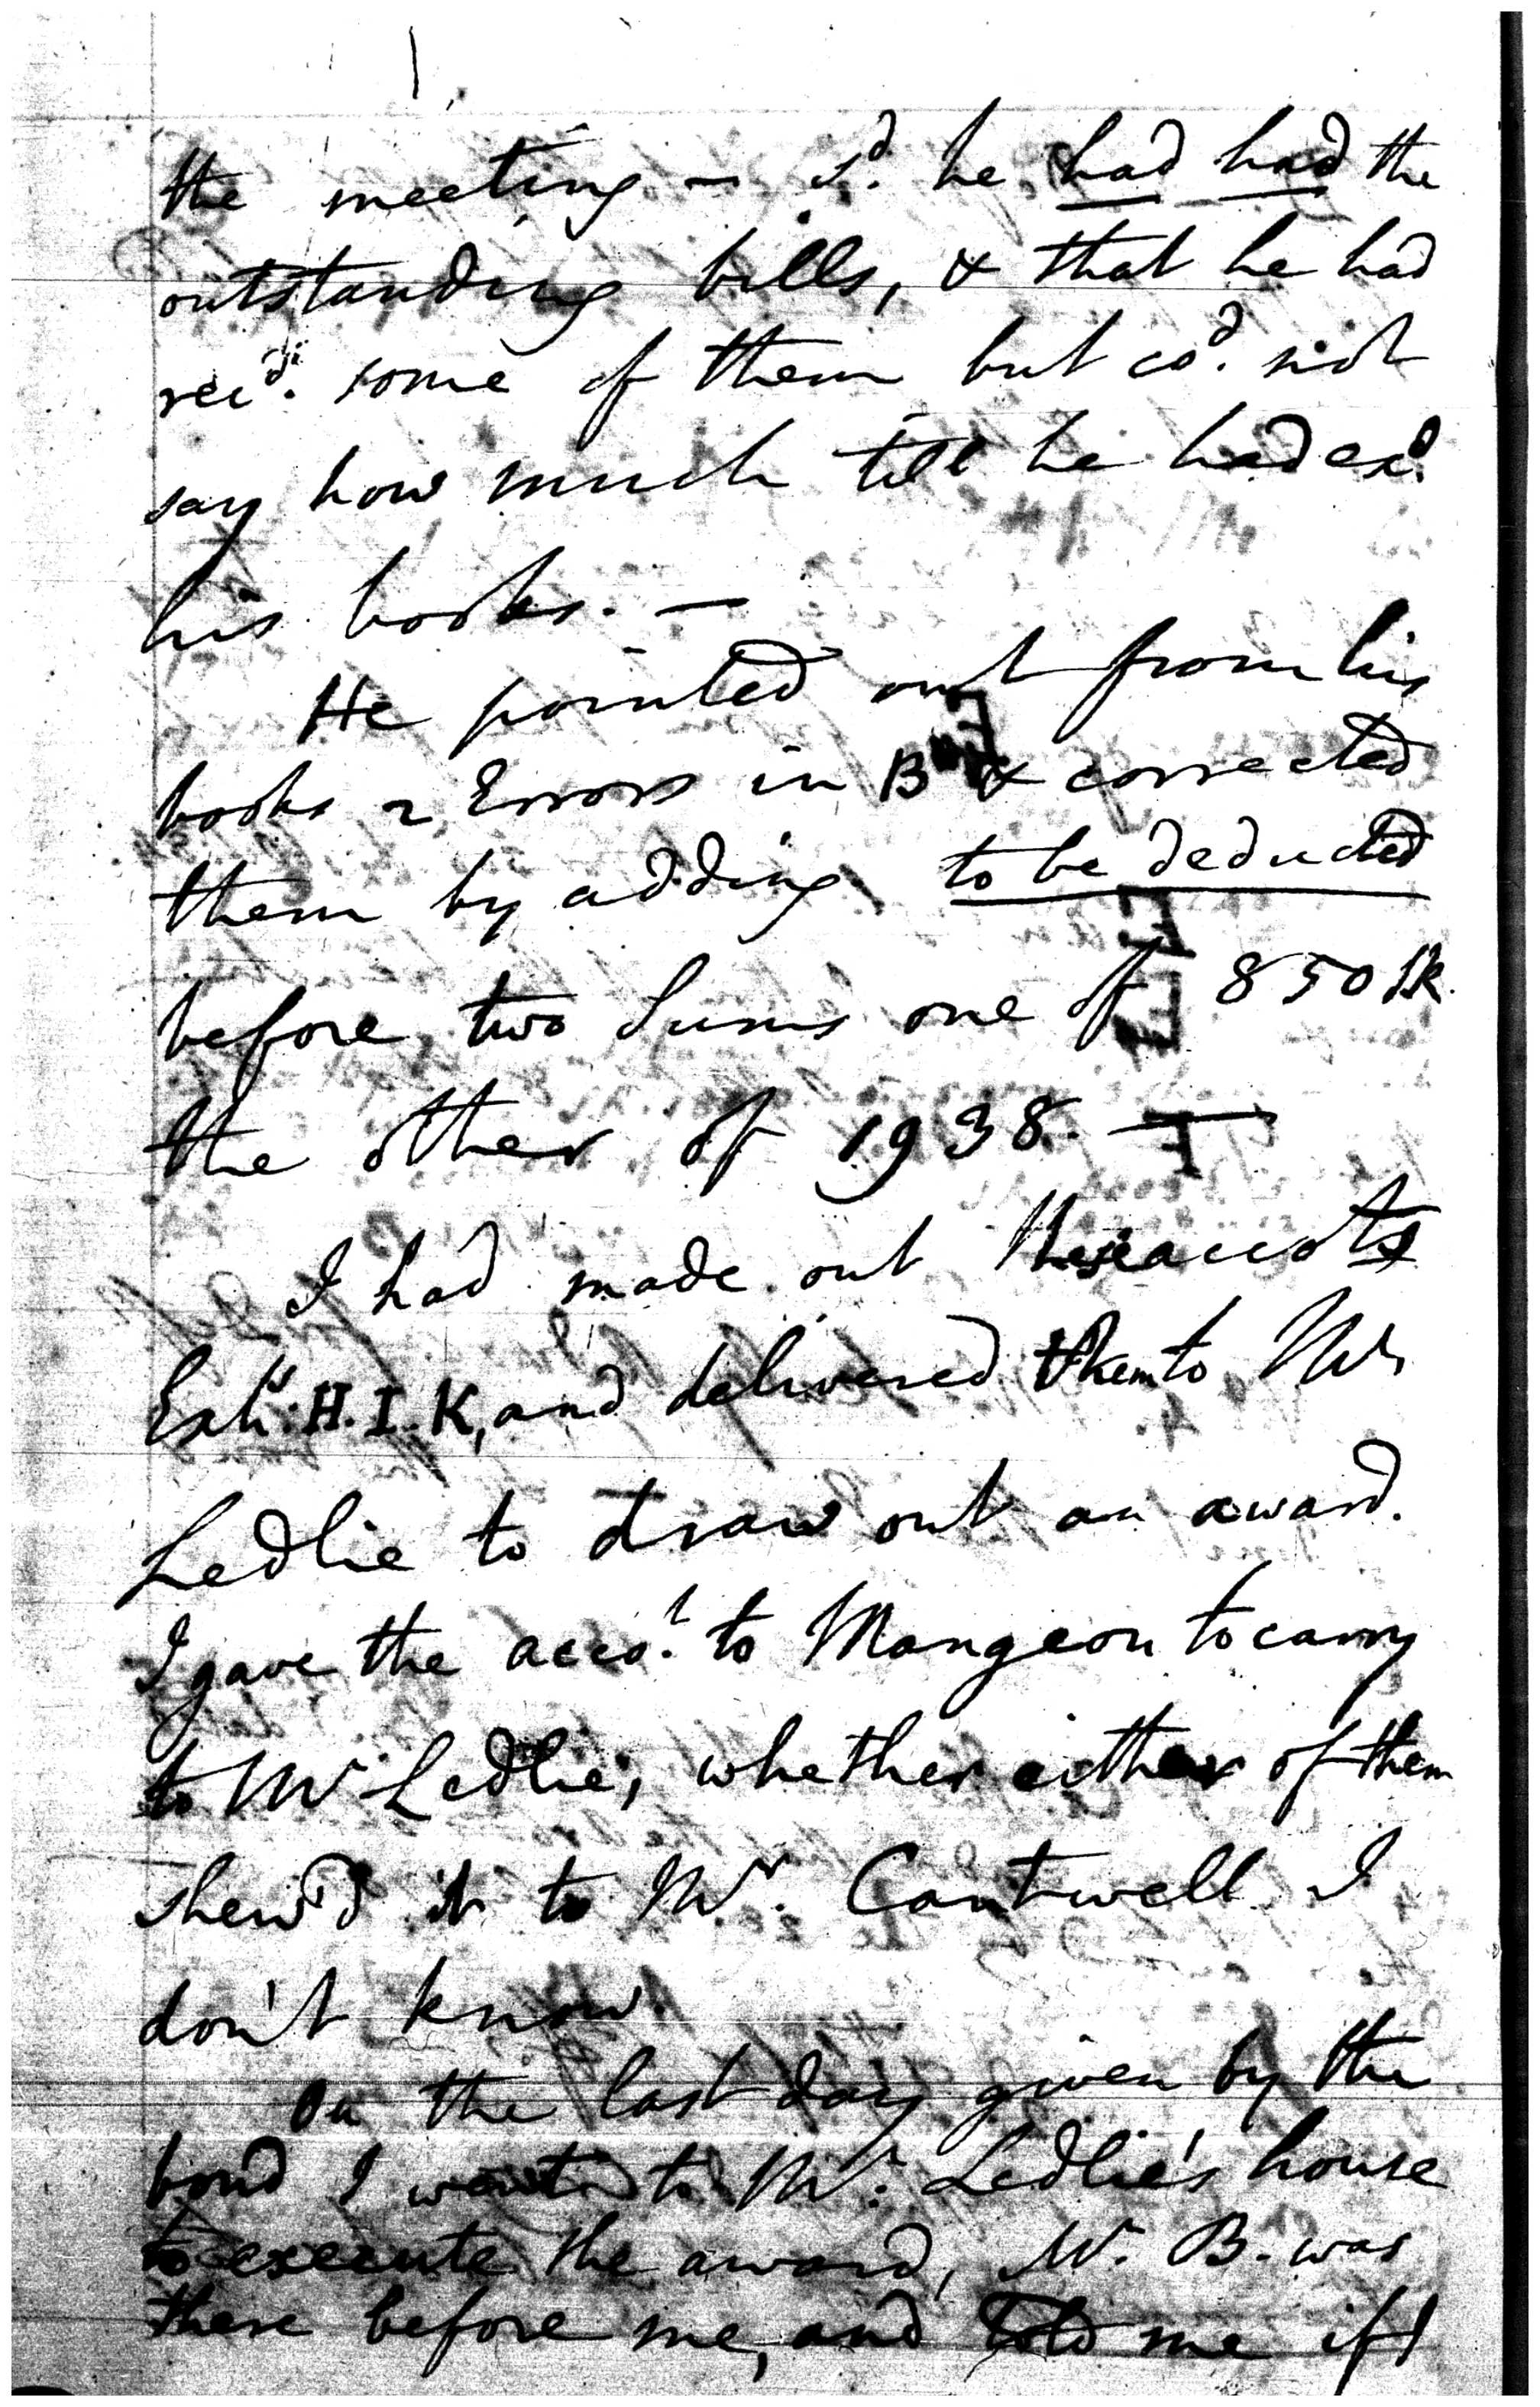 the meeting — sd. he had had the
outstanding bills, & that he had
recd. some of them but cod. not
say how much till he had exd.
his books. —
He pointed out from his
books 2 Errors in B & corrected
them by adding to be deducted
before two Sums one of 850 Sk.
the other of 1938. —
I had made out these accots
Exhs: H. I. K, and delivered them to Mr
Ledlie to draw out an award.
I gave the accot. to Mangeon to carry
to Mr Ledlie; whether either of them
shew'd it to Mr. Cantwell I
don't know.
On the last day given by the
bond I went to Mr. Ledlie's house
to execute the award, Mr. B. was
there before me, and told me if I